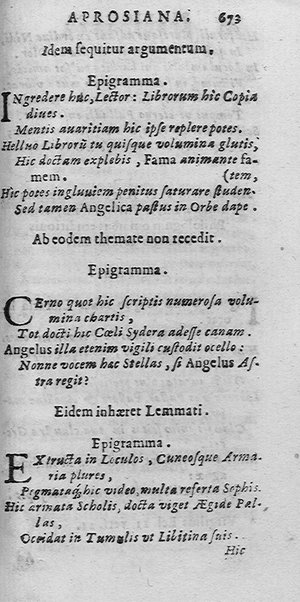 APROSIANA. 673
Idem sequitur argumentum.
Epigramma.
INgredere huc, Lector: Librorum hic Copia
diues.
Mentis auaritiam hic ipse replere potes.
Helluo Librorũ tu quisque volumina glutis,
Hic doctam explebis, Fama animante fa-
mem. (tem,
Hic potes ingluuiem penitus saturare studen-
Sed tamen Angelica pastus in Orbe dape.
Ab eodem themate non recedit.
Epigramma.
CErno quot hic scriptis numerosa volu-
mina chartis,
Tot docti hic Cœli Sydera adesse canam.
Angelus illa etenim vigili custodit ocello:
Nonne vocem hac Stellas, si Angelus As-
tra regit?
Eidem inhæret Lemmati.
Epigramma.
EXtructa in Loculos, Cuneosque Arma-
ria plures,
Pegmataq; hic video, multa referta Sophis.
Hic armata Scholis, docta viget Ægide Pal-
las,
Occidat in Tumulis vt Libitina suis..
Hic